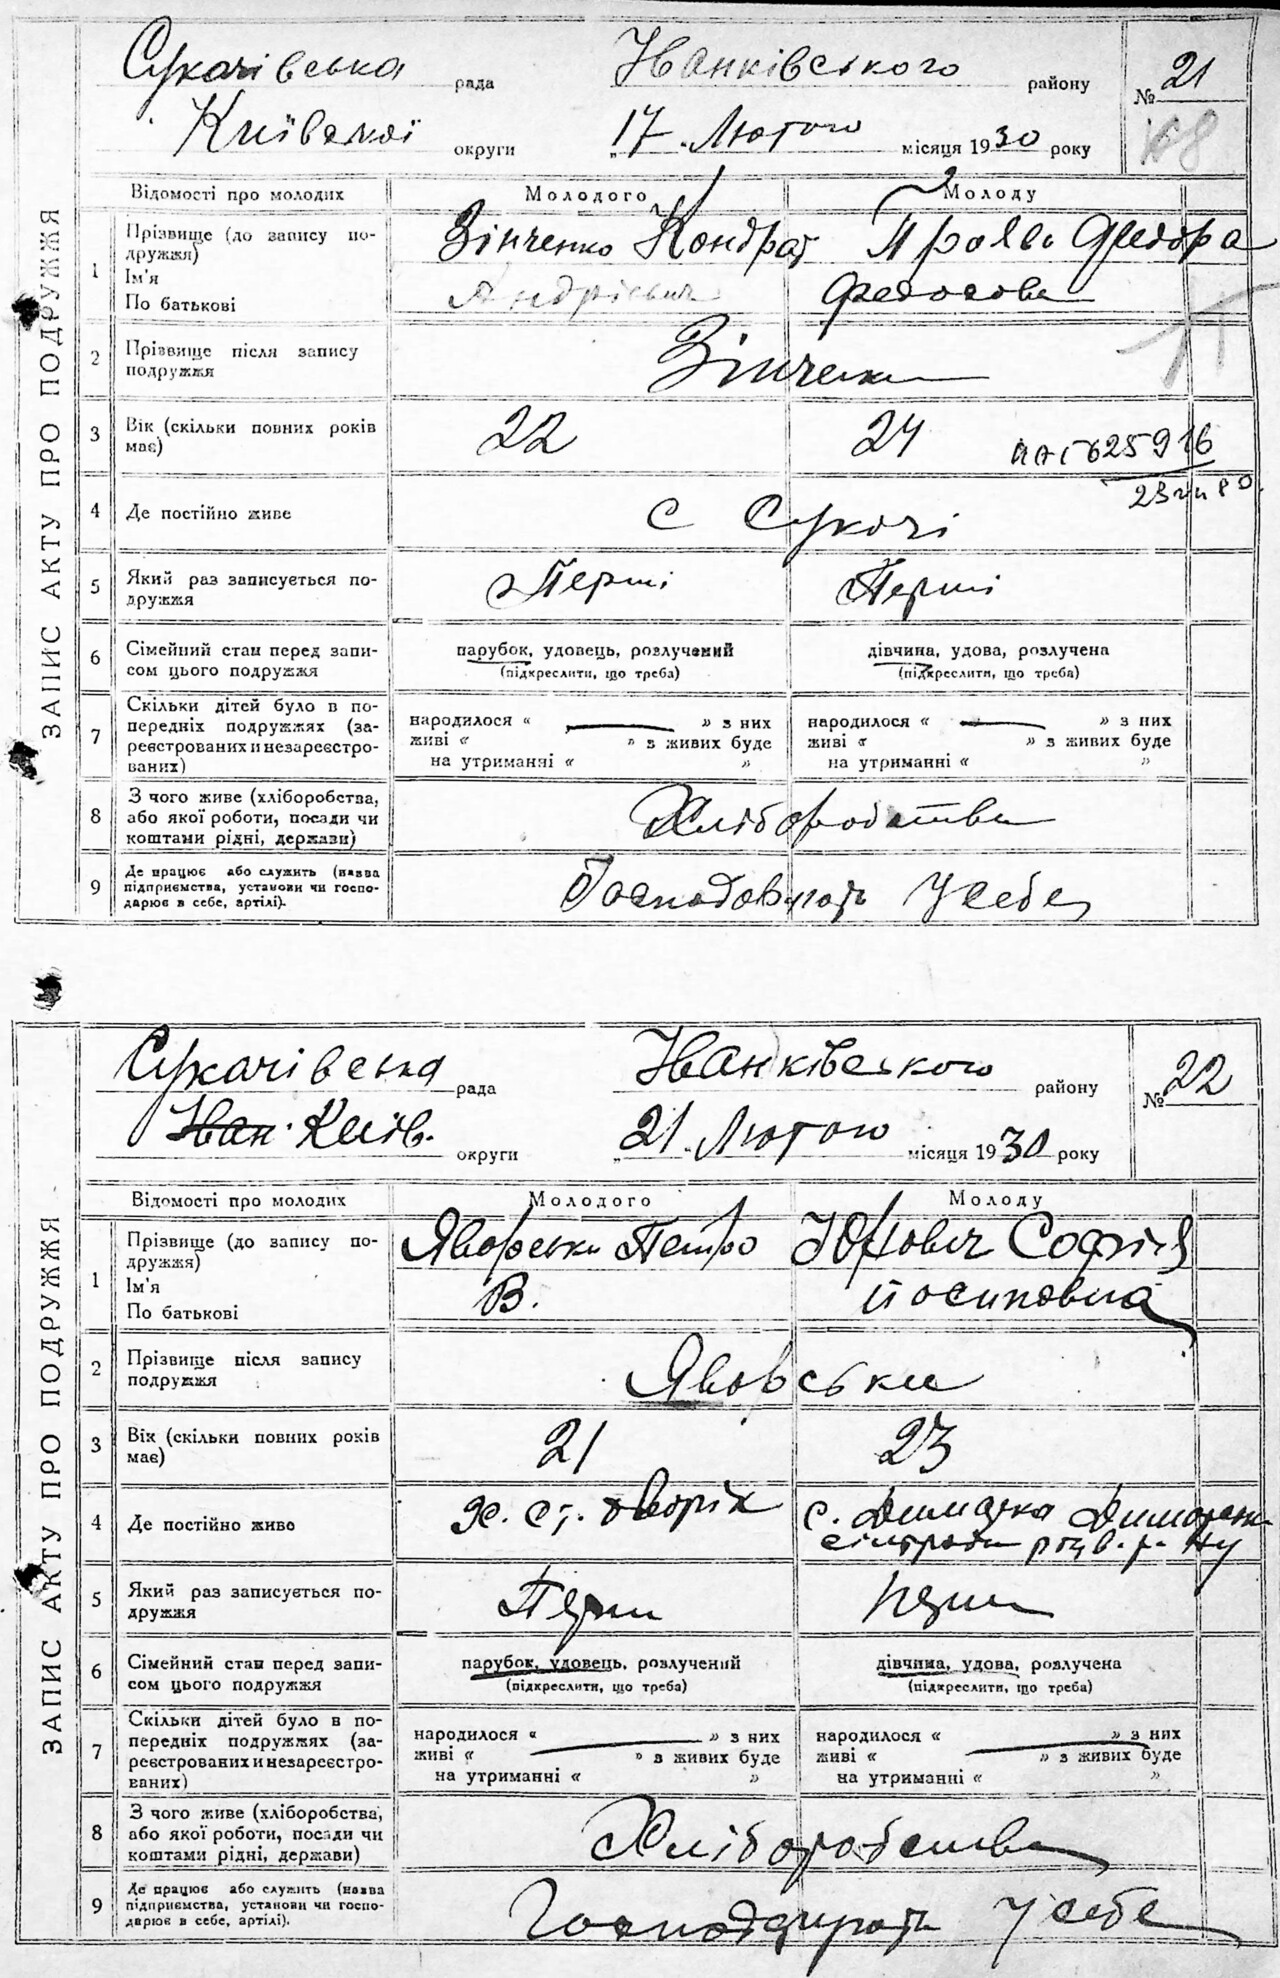 ЗАПИС АКТУ ПРО ПОДРУЖЖЯ
Сукачівська рада Іванківського району № 21
Київської округи „17„ Лютого місяця 1930 року
Відомості про молодих Молодого Молоду
1 Прізвище (до запису по-
дружжя)
Ім'я
По батькові
Зінченко Кондрат Федора
Андрієвич Федосова
2 Прізвище після запису
подружжя
Зінченки
3 Вік (скільки повних років
має)
22 24
25916
4 Де постійно живе с Сукачі
5 Який раз записується по-
дружжя
Перші Перші
6 Сімейний стан перед запи-
сом цього подружжя
парубок, удовець, розлучений дівчина, удова, розлучена
(підкреслити, що треба) (підкреслити, що треба)
7 Скільки дітей було в по-
передніх подружжях (за-
реєстрованих и незареєстро-
ваних)
народилося « » з них народилося « » з них
живі « » з живих буде живі « » з живих буде
на утриманні « » на утриманні « »
8 З чого живе (хліборобства,
або якої роботи, посади чи
коштами рідні, держави)
Хліборобства
9 Де працює або служить (назва
підприємства, установи чи госпо-
дарює в себе, артілі).
У себе
ЗАПИС АКТУ ПРО ПОДРУЖЖЯ
Сукачівська рада Іванківського району № 22
Іван. Київ. округи „21„ Лютого місяця 1930 року
Відомості про молодих Молодого Молоду
1 Прізвище (до запису по-
дружжя)
Ім'я
По батькові
Яворськи Петро Юрович Софія
В. Йосиповна
2 Прізвище після запису
подружжя
Яворськи
3 Вік (скільки повних років
має)
21 23
4 Де постійно живе
х. Ст. с. Димарка
5 Який раз записується по-
дружжя
Перши перши
6 Сімейний стан перед запи-
сом цього подружжя
парубок, удовець, розлучений дівчина, удова, розлучена
(підкреслити, що треба) (підкреслити, що треба)
7 Скільки дітей було в по-
передніх подружжях (за-
реєстрованих и незареєстро-
ваних)
народилося « » з них народилося « » з них
живі « » з живих буде живі « » з живих буде
на утриманні « » на утриманні « »
8 З чого живе (хліборобства,
або якої роботи, посади чи
коштами рідні, держави)
Хліборобства
9 Де працює або служить (назва
підприємства, установи чи госпо-
дарює в себе, артілі).
У себе